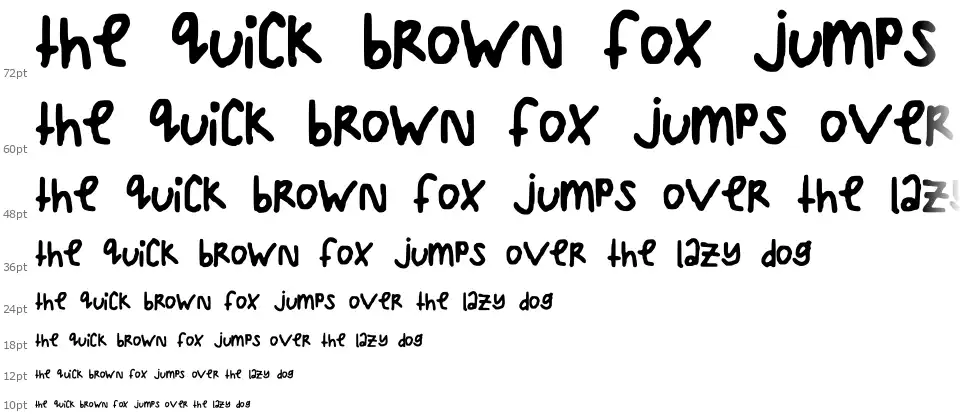 the quick brown fox jumps
72pt
the quick brown fox jumps over
60pt
the quick brown fox jumps over the lazy
48pt
the quick brown fox jumps over the lazy dog
36pt
the quick brown fox jumps over the lazy dog
24pt
the quick brown fox jumps over the lazy dog
18pt
the quick brown fox jumps over the lazy dog
12pt
the quick brown fox jumps over the lazy dog
10pt